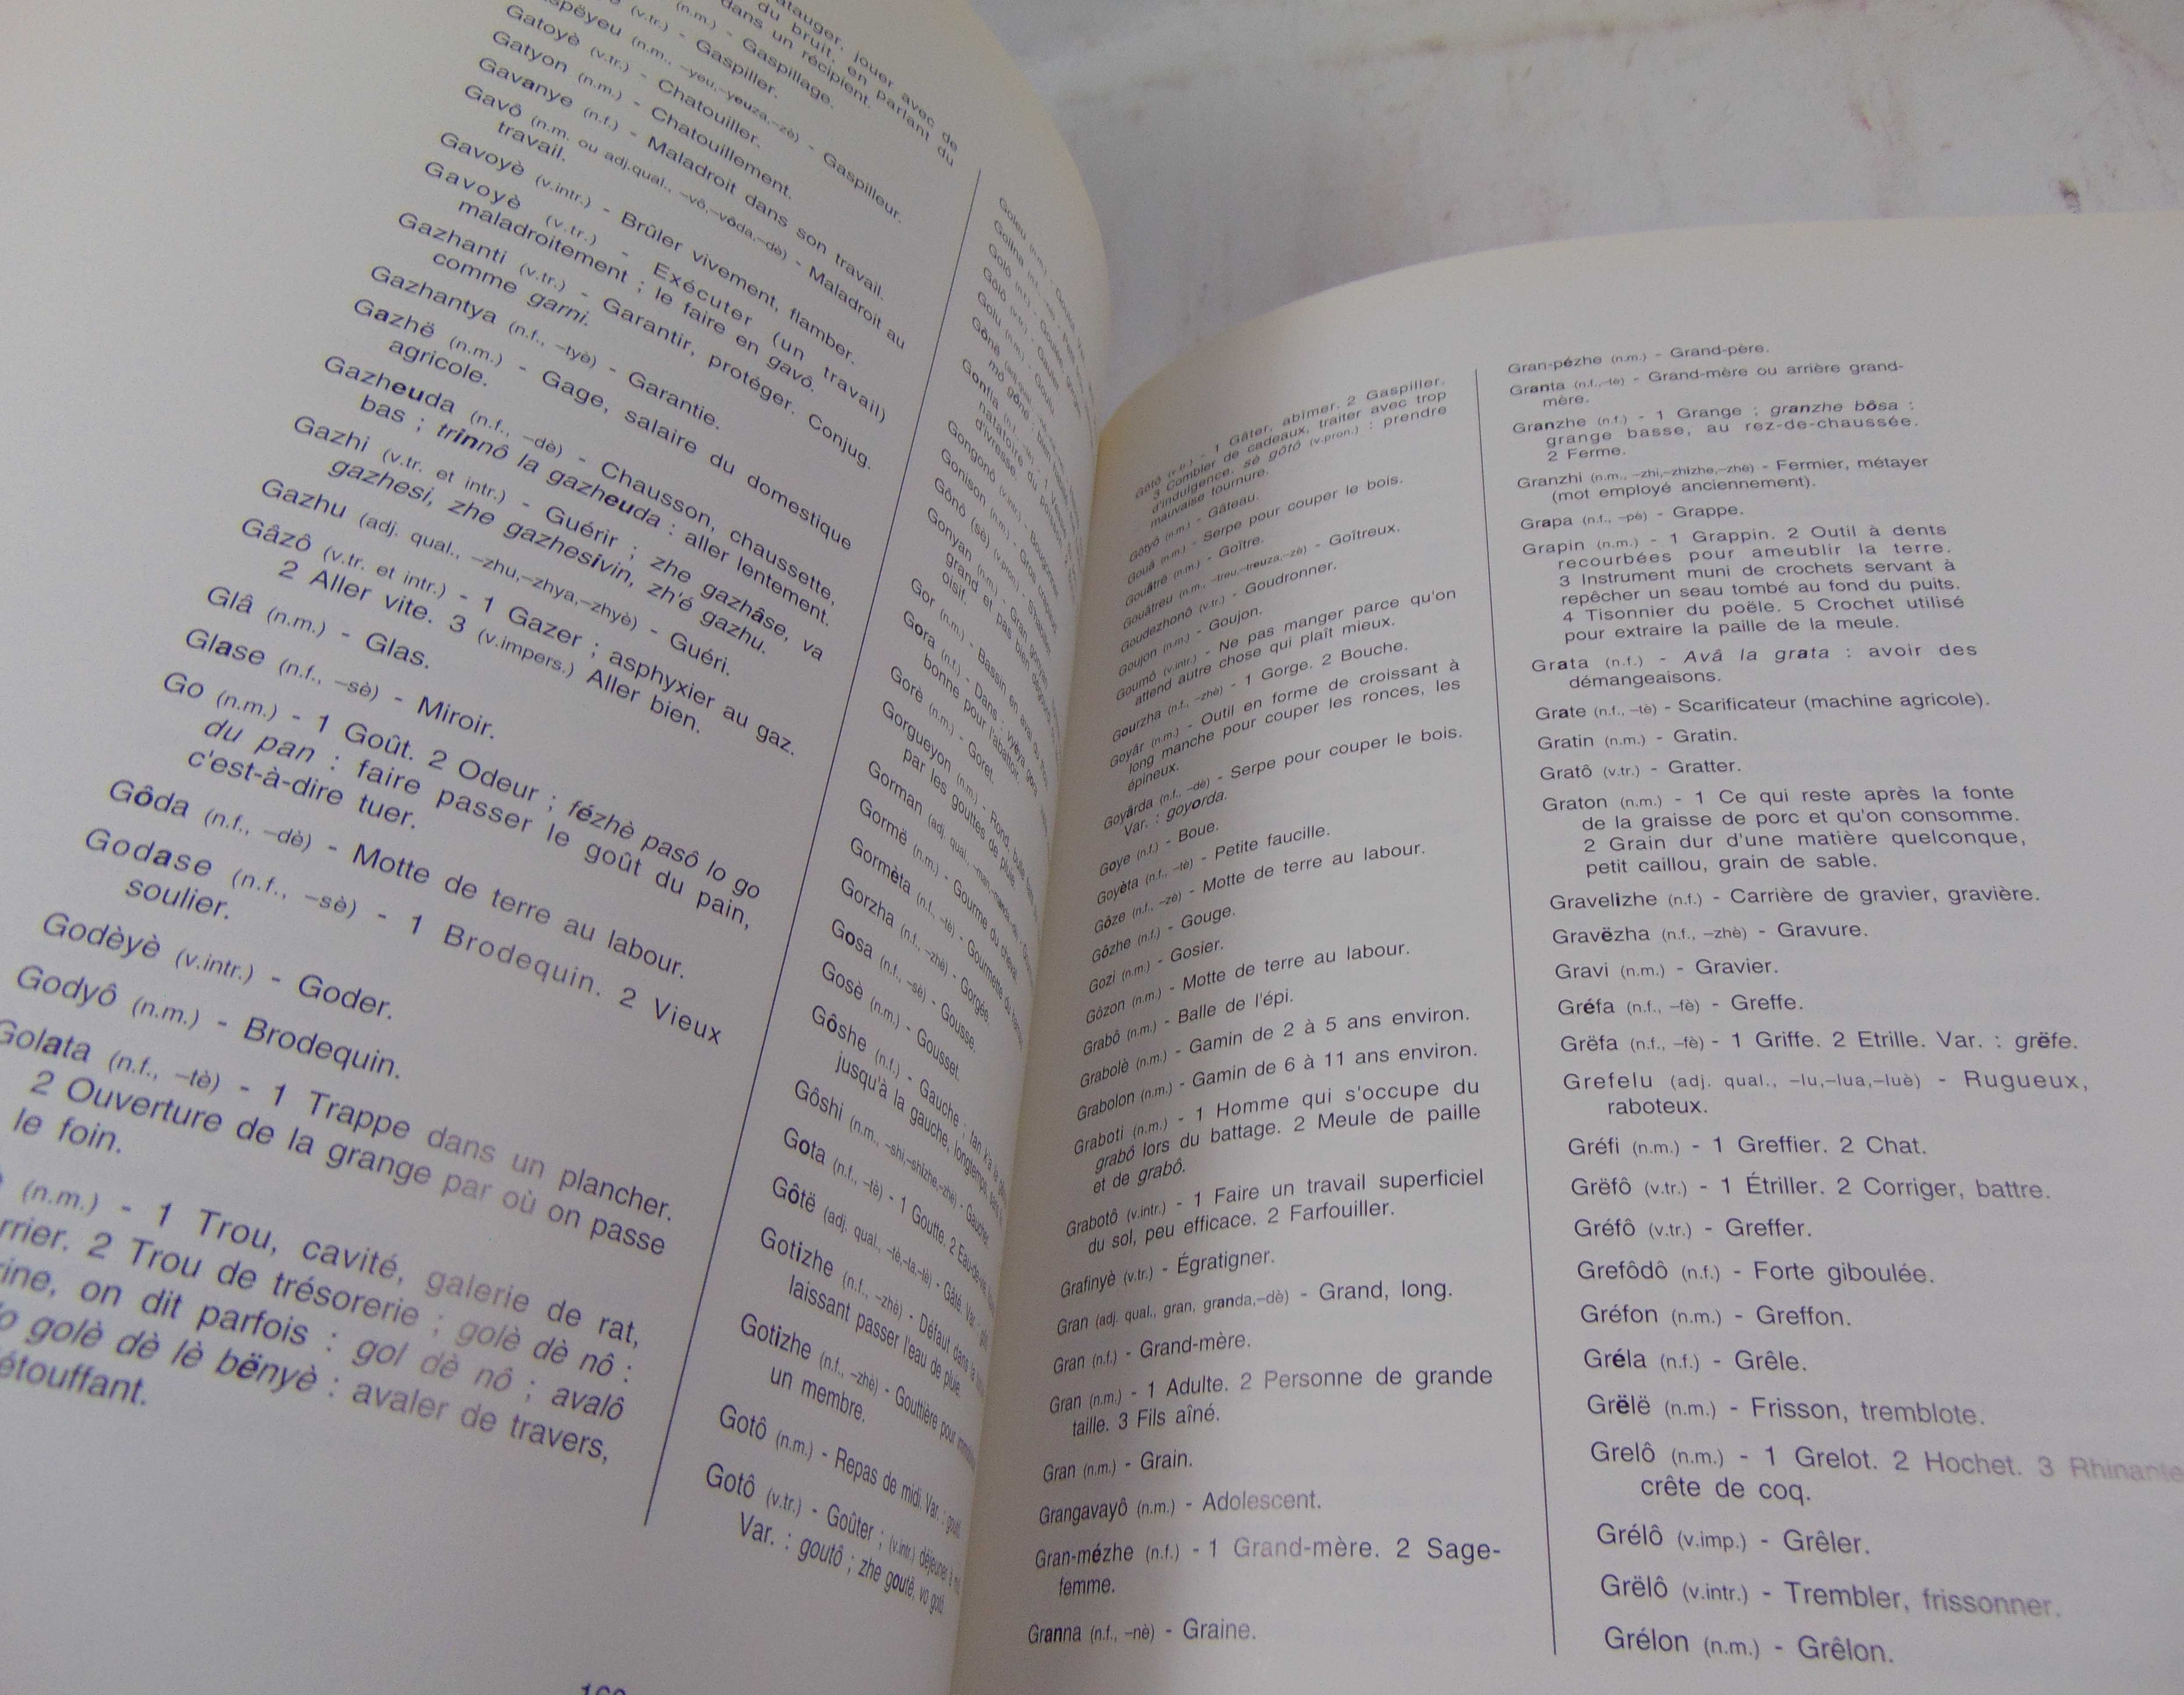 jouer avec de
du bruit, en parlant du
dans un récipient.
(n.m.) - Gaspillage.
(v.tr.) - Gaspiller.
(n.m., –yeu,–yeuza,–zè) - Gaspilleur.
Gatoyè (v.tr.) - Chatouiller.
Gatyon (n.m.) - Chatouillement.
Gavanye (n.f.) - Maladroit dans son travail.
Gavô (n.m. ou adj.qual., –vô,–vôda,–dè) - Maladroit au
travail.
Gavoyè (v.intr.) - Brûler vivement, flamber.
Gavoyè (v.tr.) - Exécuter (un travail)
maladroitement ; le faire en gavô.
Gazhanti (v.tr.) - Garantir, protéger. Conjug.
comme garni.
Gazhantya (n.f., –tyè) - Garantie.
Gazhë (n.m.) - Gage, salaire du domestique
agricole.
Gazheuda (n.f., –dè) - Chausson, chaussette,
bas ; trinnô la gazheuda : aller lentement.
Gazhi (v.tr. et intr.) - Guérir ; zhe gazhâse, va
gazhesi, zhe gazhesivin, zh'é gazhu.
Gazhu (adj. qual., –zhu,–zhya,–zhyè) - Guéri.
Gâzô (v.tr. et intr.) - 1 Gazer ; asphyxier au gaz.
2 Aller vite. 3 (v.impers.) Aller bien.
Glâ (n.m.) - Glas.
Glase (n.f., –sè) - Miroir.
Go (n.m.) - 1 Goût. 2 Odeur ; fézhè pasô lo go
du pan : faire passer le goût du pain,
c'est-à-dire tuer.
Gôda (n.f., –dè) - Motte de terre au labour.
Godase (n.f., –sè) - 1 Brodequin. 2 Vieux
soulier.
Godèyè (v.intr.) - Goder.
Godyô (n.m.) - Brodequin.
Golata (n.f., –tè) - 1 Trappe dans un plancher.
2 Ouverture de la grange par où on passe
le foin.
(n.m.) - 1 Trou, cavité, galerie de rat,
2 Trou de trésorerie ; golè dè nô :
on dit parfois : gol dè nô ; avalô
golè dè lè bënyè : avaler de travers,
Goleu (n.m.)
Golô
Golu (n.m.)
Gônë
Gonfla
natatoire du poisson.
d'ivresse.
Gongonô (v.intr.) - Bougonner.
Gonison (n.m.) - Gros
Gônô (sè) (v.pron.)
Gonyan (n.m.) - Gran
grand et pas bien
oisif.
Gor (n.m.) - Bassin en
Gora (n.f.) - Dans :
bonne pour l'abattoir.
Gorè (n.m.) - Goret.
Gorgueyon (n.m.) - Rond, bulle
par les gouttes de pluie.
Gorman (adj. qual.,
Gormë (n.m.) - Gourme du cheval.
Gormèta (n.f., –tè) - Gourmette du
Gorzha (n.f., –zhè) - Gorgée.
Gosa (n.f., –sè) - Gousse.
Gosè (n.m.) - Gousset.
Gôshe (n.f.) - Gauche ;
jusqu'à la gauche, longtemps,
Gôshi (n.m., –shi,–shizhe,–zhè) - Gaucher.
Gota (n.f., –tè) - 1 Goutte. 2 Eau-de-vie.
Gôtë (adj. qual., –të,–ta,–tè) - Gâté. Var. :
Gotizhe (n.f., –zhè) - Défaut dans la
laissant passer l'eau de pluie.
Gotizhe (n.f., –zhè) - Gouttière pour
un membre.
Gotô (n.m.) - Repas de midi. Var. : goutô.
Gotô (v.tr.) - Goûter ; (v.intr.) déjeuner à
Var. : goutô ; zhe goutë, vo
Gôtô (v.tr.) - 1 Gâter, abîmer. 2 Gaspiller.
3 Combler de cadeaux, traiter avec trop
d'indulgence. sè gôtô (v.pron.) : prendre
mauvaise tournure.
Gôtyô (n.m.) - Gâteau.
Gouâ (n.m.) - Serpe pour couper le bois.
Gouâtrë (n.m.) - Goître.
Gouâtreu (n.m., –treu,–treuza,–zè) - Goîtreux.
Goudezhonô (v.tr.) - Goudronner.
Goujon (n.m.) - Goujon.
Goumô (v.intr.) - Ne pas manger parce qu'on
attend autre chose qui plaît mieux.
Gourzha (n.f., –zhè) - 1 Gorge. 2 Bouche.
Goyâr (n.m.) - Outil en forme de croissant à
long manche pour couper les ronces, les
épineux.
Goyârda (n.f., –dè) - Serpe pour couper le bois.
Var. : goyorda.
Goye (n.f.) - Boue.
Goyèta (n.f., –tè) - Petite faucille.
Gôze (n.f., –zè) - Motte de terre au labour.
Gôzhe (n.f.) - Gouge.
Gozi (n.m.) - Gosier.
Gôzon (n.m.) - Motte de terre au labour.
Grabô (n.m.) - Balle de l'épi.
Grabolè (n.m.) - Gamin de 2 à 5 ans environ.
Grabolon (n.m.) - Gamin de 6 à 11 ans environ.
Graboti (n.m.) - 1 Homme qui s'occupe du
grabô lors du battage. 2 Meule de paille
et de grabô.
Grabotô (v.intr.) - 1 Faire un travail superficiel
du sol, peu efficace. 2 Farfouiller.
Grafinyè (v.tr.) - Égratigner.
Gran (adj. qual., gran, granda,–dè) - Grand, long.
Gran (n.f.) - Grand-mère.
Gran (n.m.) - 1 Adulte. 2 Personne de grande
taille. 3 Fils aîné.
Gran (n.m.) - Grain.
Grangavayô (n.m.) - Adolescent.
Gran-mézhe (n.f.) - 1 Grand-mère. 2 Sage-
femme.
Granna (n.f., –nè) - Graine.
Gran-pézhe (n.m.) - Grand-père.
Granta (n.f.,–tè) - Grand-mère ou arrière grand-
mère.
Granzhe (n.f.) - 1 Grange ; granzhe bôsa :
grange basse, au rez-de-chaussée.
2 Ferme.
Granzhi (n.m., –zhi,–zhizhe,–zhè) - Fermier, métayer
(mot employé anciennement).
Grapa (n.f., –pè) - Grappe.
Grapin (n.m.) - 1 Grappin. 2 Outil à dents
recourbées pour ameublir la terre.
3 Instrument muni de crochets servant à
repêcher un seau tombé au fond du puits.
4 Tisonnier du poële. 5 Crochet utilisé
pour extraire la paille de la meule.
Grata (n.f.) - Avâ la grata : avoir des
démangeaisons.
Grate (n.f., –tè) - Scarificateur (machine agricole).
Gratin (n.m.) - Gratin.
Gratô (v.tr.) - Gratter.
Graton (n.m.) - 1 Ce qui reste après la fonte
de la graisse de porc et qu'on consomme.
2 Grain dur d'une matière quelconque,
petit caillou, grain de sable.
Gravelizhe (n.f.) - Carrière de gravier, gravière.
Gravëzha (n.f., –zhè) - Gravure.
Gravi (n.m.) - Gravier.
Gréfa (n.f., –fè) - Greffe.
Grëfa (n.f., –fè) - 1 Griffe. 2 Etrille. Var. : grëfe.
Grefelu (adj. qual., –lu,–lua,–luè) - Rugueux,
raboteux.
Gréfi (n.m.) - 1 Greffier. 2 Chat.
Grëfô (v.tr.) - 1 Étriller. 2 Corriger, battre.
Gréfô (v.tr.) - Greffer.
Grefôdô (n.f.) - Forte giboulée.
Gréfon (n.m.) - Greffon.
Gréla (n.f.) - Grêle.
Grëlë (n.m.) - Frisson, tremblote.
Grelô (n.m.) - 1 Grelot. 2 Hochet. 3 Rhinante
crête de coq.
Grélô (v.imp.) - Grêler.
Grëlô (v.intr.) - Trembler, frissonner.
Grélon (n.m.) - Grêlon.